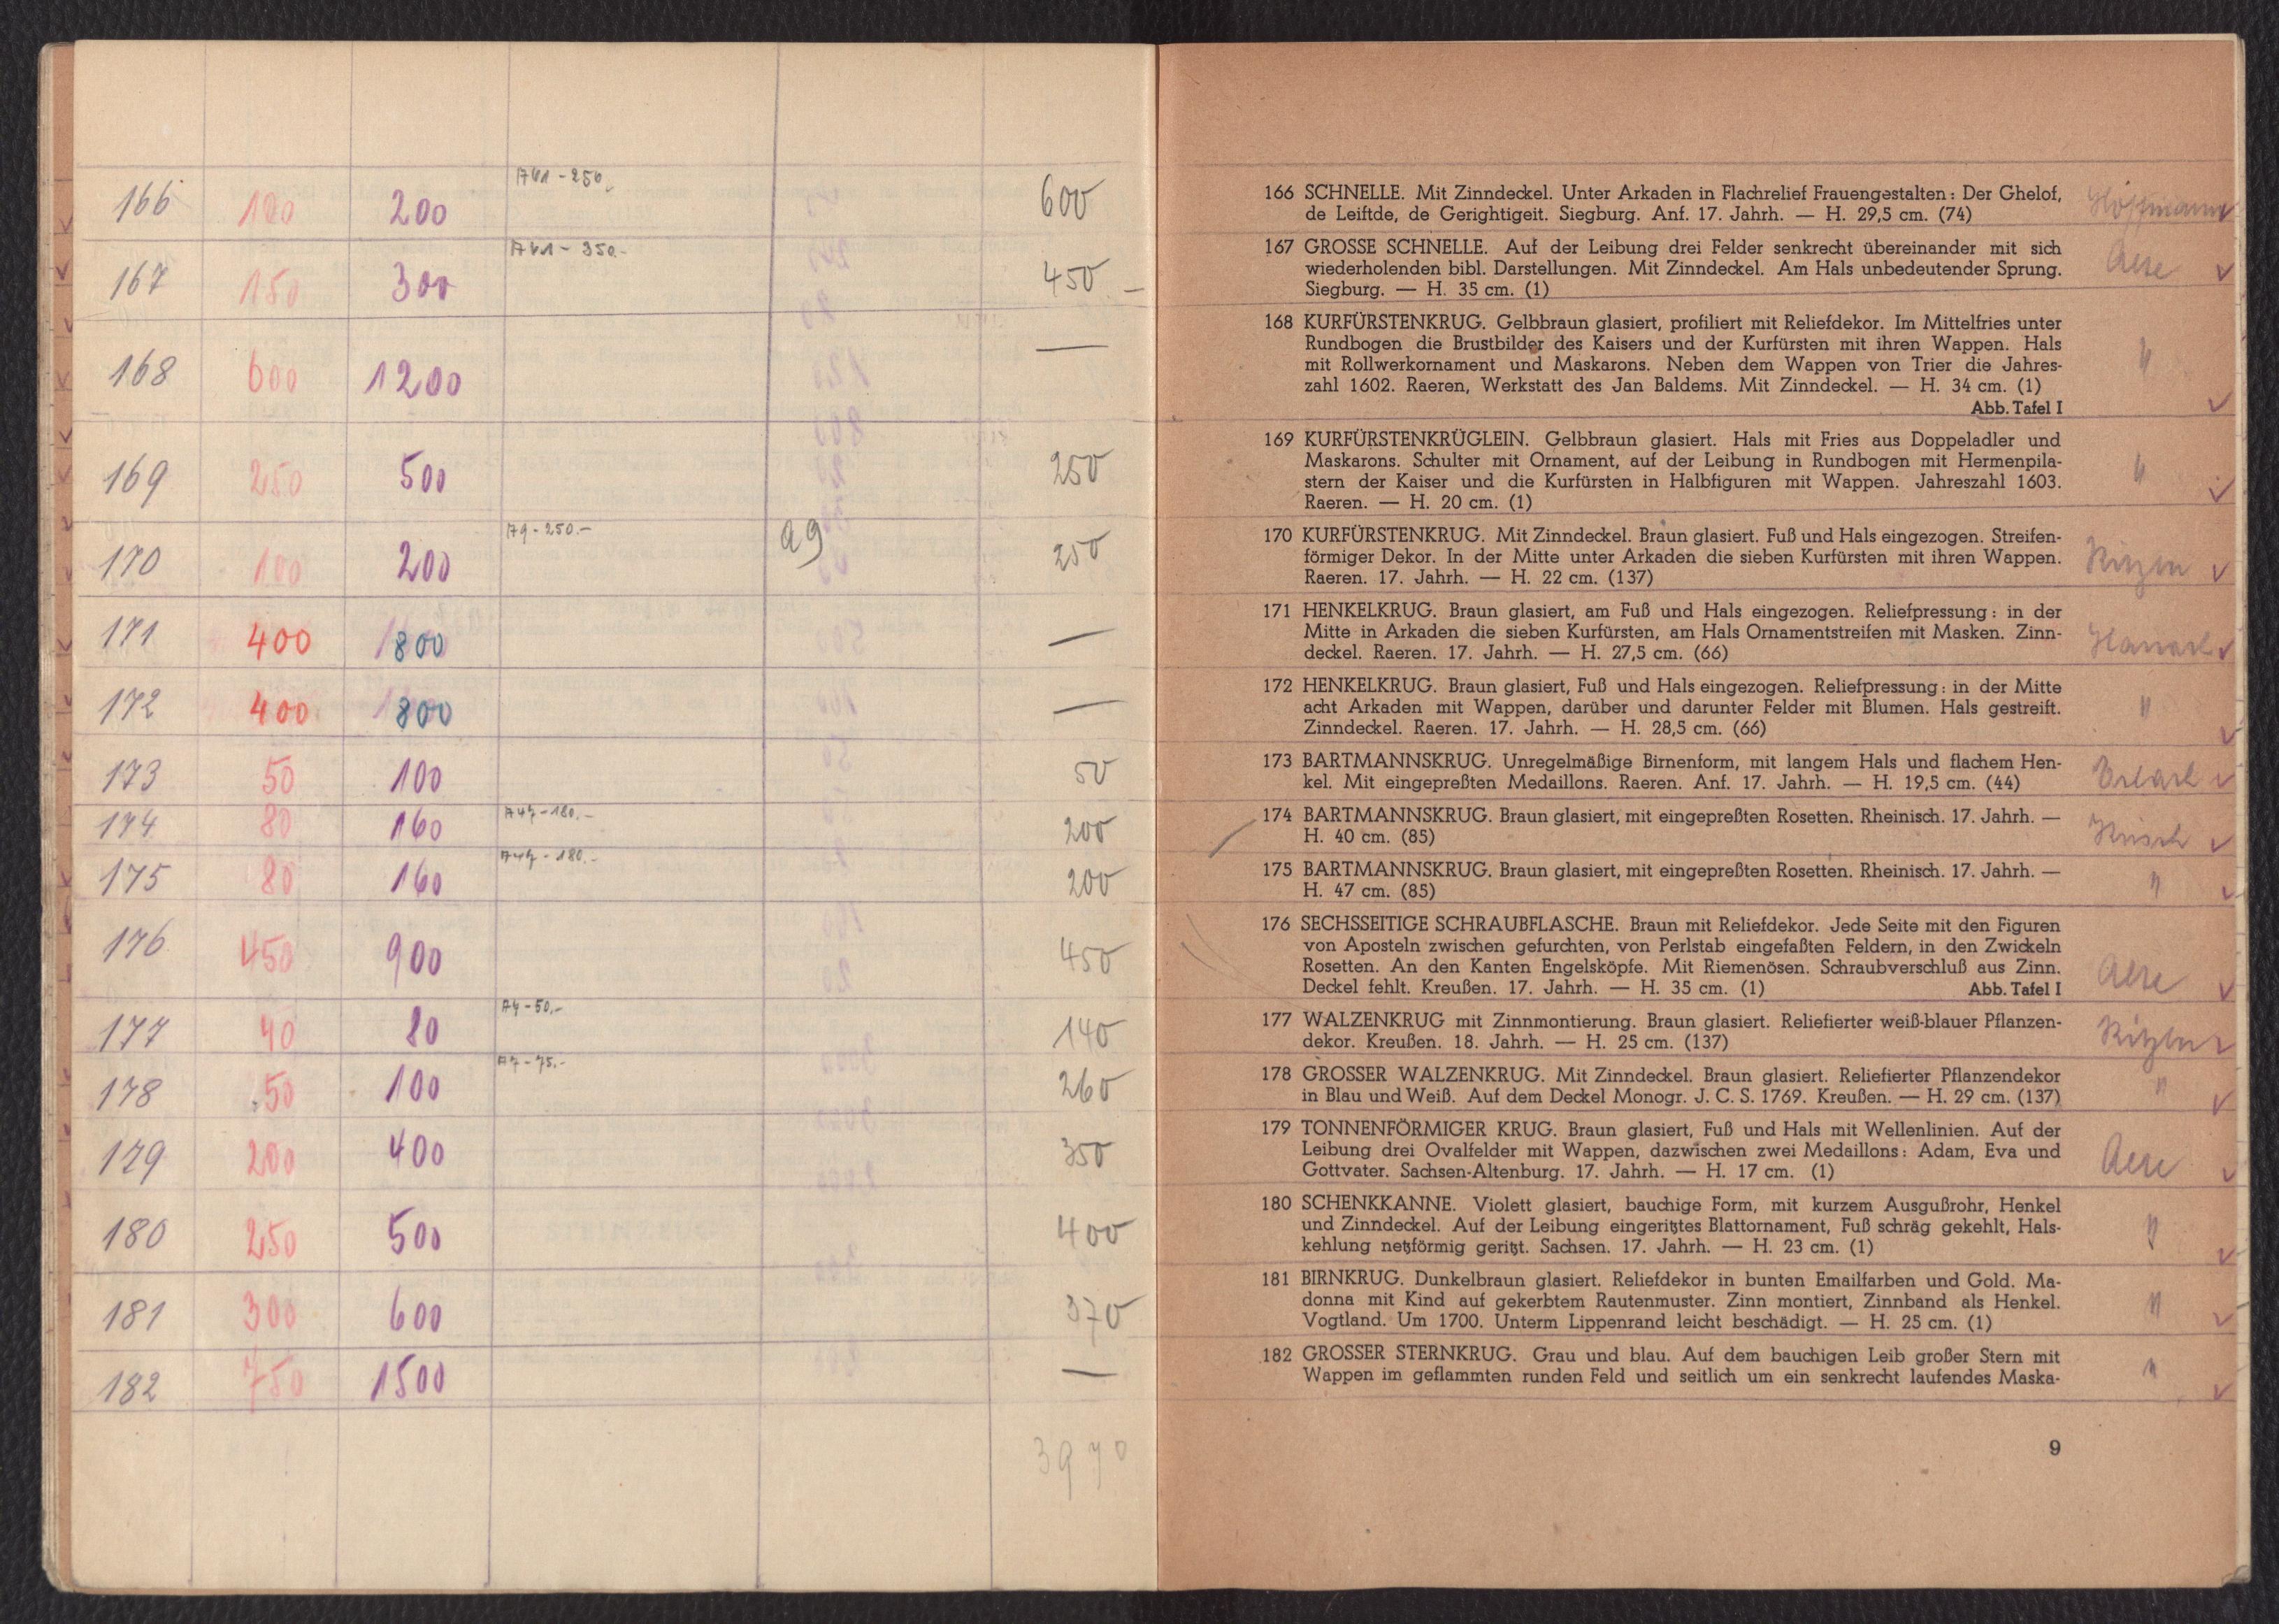 166 100 200 A61-250. 600
167 150 300 A61-350.- 450.-
168 600 1200 —
169 250 500 250
170 100 200 A9-250.- a9 250
171 400 800 —
172 400 800 —
173 50 100 50
174 80 160 A47-180.- 200
175 80 160 A47-180.- 200
176 450 900 450
177 40 80 A7-50.- 140
178 50 100 A7-75.- 260
179 200 400 350
180 250 500 400
181 300 600 370
182 750 1500 —
3970
166 SCHNELLE. Mit Zinndeckel. Unter Arkaden in Flachrelief Frauengestalten: Der Ghelof,
de Leiftde, de Gerightigeit. Siegburg. Anf. 17. Jahrh. — H. 29,5 cm. (74)
Hoffmann
167 GROSSE SCHNELLE. Auf der Leibung drei Felder senkrecht übereinander mit sich
wiederholenden bibl. Darstellungen. Mit Zinndeckel. Am Hals unbedeutender Sprung.
Siegburg. — H. 35 cm. (1)
168 KURFÜRSTENKRUG. Gelbbraun glasiert, profiliert mit Reliefdekor. Im Mittelfries unter
Rundbogen die Brustbilder des Kaisers und der Kurfürsten mit ihren Wappen. Hals
mit Rollwerkornament und Maskarons. Neben dem Wappen von Trier die Jahres-
zahl 1602. Raeren, Werkstatt des Jan Baldems. Mit Zinndeckel. — H. 34 cm. (1)
Abb. Tafel I
"
169 KURFÜRSTENKRÜGLEIN. Gelbbraun glasiert. Hals mit Fries aus Doppeladler und
Maskarons. Schulter mit Ornament, auf der Leibung in Rundbogen mit Hermenpila-
stern der Kaiser und die Kurfürsten in Halbfiguren mit Wappen. Jahreszahl 1603.
Raeren. — H. 20 cm. (1)
"
170 KURFÜRSTENKRUG. Mit Zinndeckel. Braun glasiert. Fuß und Hals eingezogen. Streifen-
förmiger Dekor. In der Mitte unter Arkaden die sieben Kurfürsten mit ihren Wappen.
Raeren. 17. Jahrh. — H. 22 cm. (137)
171 HENKELKRUG. Braun glasiert, am Fuß und Hals eingezogen. Reliefpressung: in der
Mitte in Arkaden die sieben Kurfürsten, am Hals Ornamentstreifen mit Masken. Zinn-
deckel. Raeren. 17. Jahrh. — H. 27,5 cm. (66)
172 HENKELKRUG. Braun glasiert, Fuß und Hals eingezogen. Reliefpressung: in der Mitte
acht Arkaden mit Wappen, darüber und darunter Felder mit Blumen. Hals gestreift.
Zinndeckel. Raeren. 17. Jahrh. — H. 28,5 cm. (66)
"
173 BARTMANNSKRUG. Unregelmäßige Birnenform, mit langem Hals und flachem Hen-
kel. Mit eingepreßten Medaillons. Raeren. Anf. 17. Jahrh. — H. 19,5 cm. (44)
174 BARTMANNSKRUG. Braun glasiert, mit eingepreßten Rosetten. Rheinisch. 17. Jahrh. —
H. 40 cm. (85)
175 BARTMANNSKRUG. Braun glasiert, mit eingepreßten Rosetten. Rheinisch. 17. Jahrh. —
H. 47 cm. (85)
"
176 SECHSSEITIGE SCHRAUBFLASCHE. Braun mit Reliefdekor. Jede Seite mit den Figuren
von Aposteln zwischen gefurchten, von Perlstab eingefaßten Feldern, in den Zwickeln
Rosetten. An den Kanten Engelsköpfe. Mit Riemenösen. Schraubverschluß aus Zinn.
Deckel fehlt. Kreußen. 17. Jahrh. — H. 35 cm. (1) Abb. Tafel I
177 WALZENKRUG mit Zinnmontierung. Braun glasiert. Reliefierter weiß-blauer Pflanzen-
dekor. Kreußen. 18. Jahrh. — H. 25 cm. (137)
178 GROSSER WALZENKRUG. Mit Zinndeckel. Braun glasiert. Reliefierter Pflanzendekor
in Blau und Weiß. Auf dem Deckel Monogr. J. C. S. 1769. Kreußen. — H. 29 cm. (137)
"
179 TONNENFÖRMIGER KRUG. Braun glasiert, Fuß und Hals mit Wellenlinien. Auf der
Leibung drei Ovalfelder mit Wappen, dazwischen zwei Medaillons: Adam, Eva und
Gottvater. Sachsen-Altenburg. 17. Jahrh. — H. 17 cm. (1)
180 SCHENKKANNE. Violett glasiert, bauchige Form, mit kurzem Ausgußrohr, Henkel
und Zinndeckel. Auf der Leibung eingeritztes Blattornament, Fuß schräg gekehlt, Hals-
kehlung netzförmig geritzt. Sachsen. 17. Jahrh. — H. 23 cm. (1)
"
181 BIRNKRUG. Dunkelbraun glasiert. Reliefdekor in bunten Emailfarben und Gold. Ma-
donna mit Kind auf gekerbtem Rautenmuster. Zinn montiert, Zinnband als Henkel.
Vogtland. Um 1700. Unterm Lippenrand leicht beschädigt. — H. 25 cm. (1)
"
182 GROSSER STERNKRUG. Grau und blau. Auf dem bauchigen Leib großer Stern mit
Wappen im geflammten runden Feld und seitlich um ein senkrecht laufendes Maska-
"
9